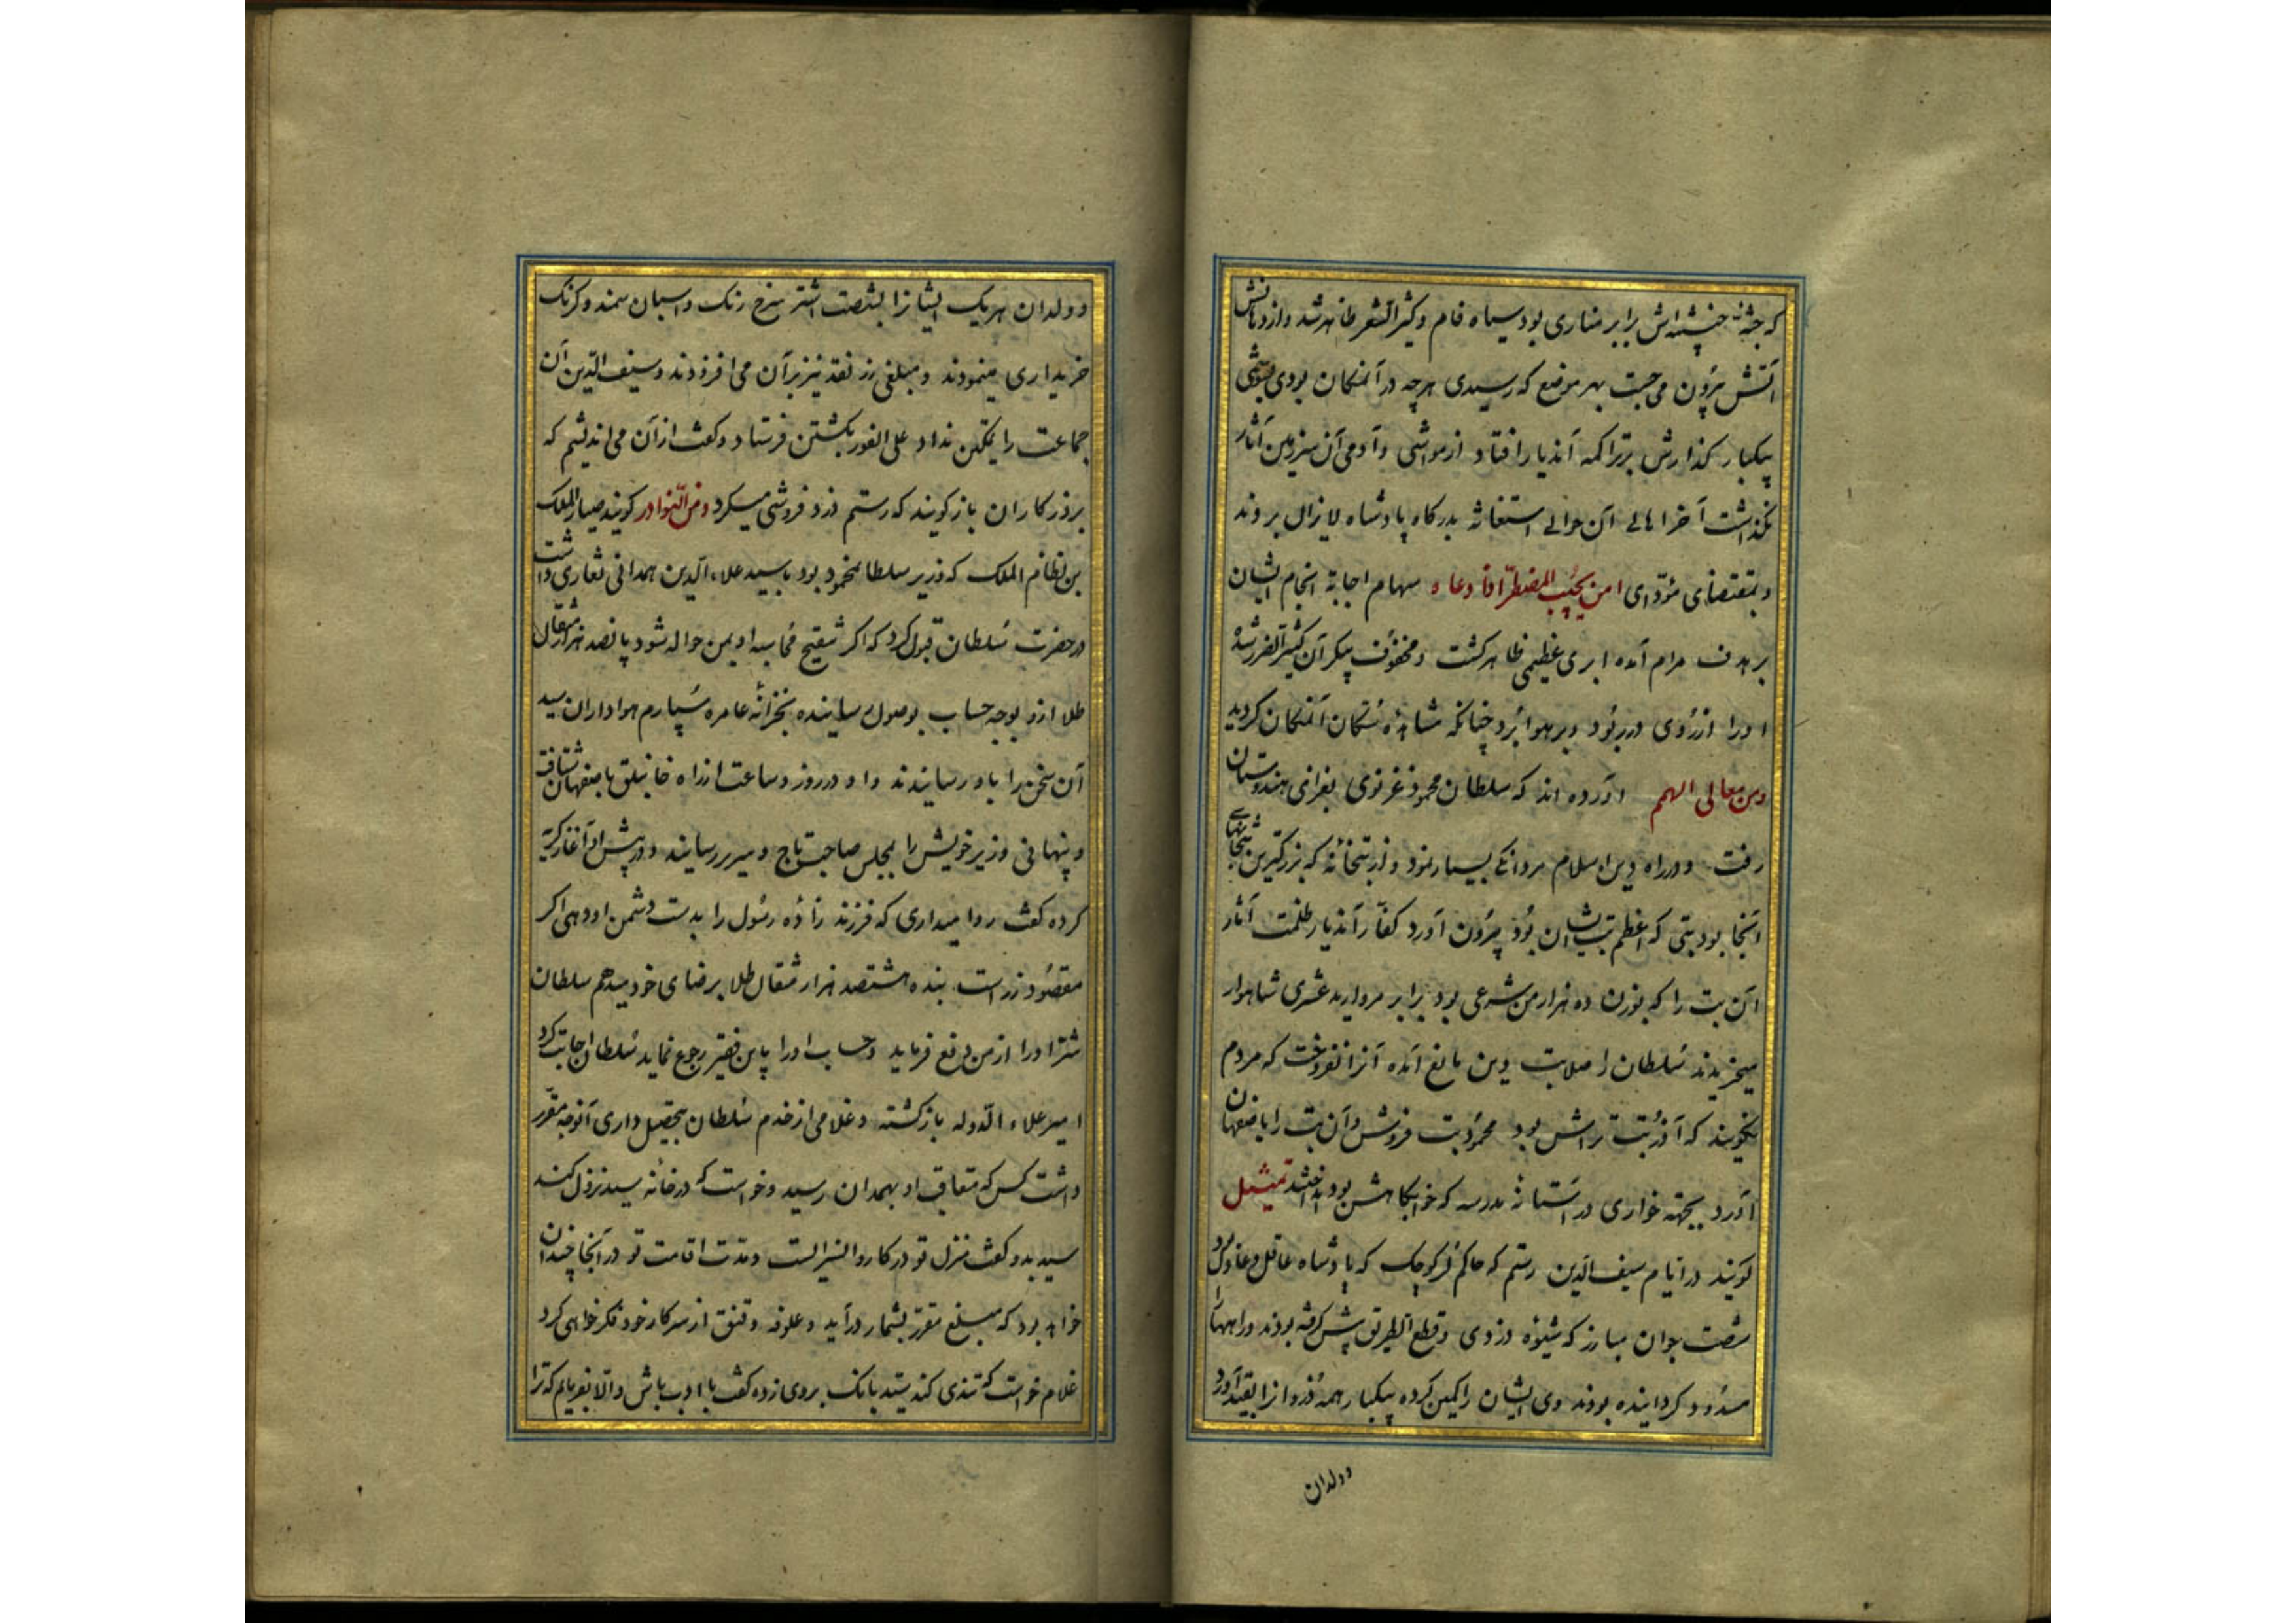 که جثهٔ خبیثه‌اش برابر مناری بود سیاه فام و کثیر الشعر ظاهر شد و از دهانش
آتش بیرون می جست بهر موضع که رسیدی هرچه در آنمکان بودی بسوختی
پیکبار کذارش بر تراکمه آندیار افتاد از مواشی و آدمی آن سرزمین آثار
نکذاشت آخر اهالی آن حوالی استغاثه بدرکاه پادشاه لایزال بردند
و بمقتضای مؤدّای امن یجیب المضطر اذا دعاه سهام اجابة انجام ایشان
بر هدف مرام آمده ابری عظیمی ظاهر کشت و مخفوف پیکر آن کثیر الضرر شد
اورا از روی در ربود و بر هوا برد چنانکه مشاهدهٔ سکان آنمکان کردید
ومن معالی الهمم آورده اند که سلطان محمود غزنوی بغزای هندوستان
رفت و در راه دین اسلام مردانکی بسیار نمود و از بتخانه که بزرکترین بتخانهای
آنجا بود بتی که اعظم بتان ایشان بود بیرون آورد کفار آندیار ظلمت آثار
آن بت را که بوزن ده هزار من شرعی بود برابر مروارید عشری شاهوار
میخریدند سلطان را صلابت دین مانع آمده آنرا نفروخت که مردم
نکویند که آذر بت تراش بود محمود بت فروش و آن بت را باصفهان
آورد بجهته خواری در آستانهٔ مدرسه که خوابکاهش بود انداختند تمثیل
کویند در ایام سیف الدین رستم که حاکم لر کوچک که پادشاه عاقل و عادل بود
شصت جوان مبارز که شیوه دزدی و قطع الطریق پیش کرفته بودند و راهها را
مسدود کردانیده بودند وی ایشان را کمین کرده پیکبار همهٔ دزدان را بقید آورد
وولدان
وولدان هر یک ایشانرا بشصت اشتر سرخ رنک و اسبان سمند و کرنک
خریداری مینمودند و مبلغی زر نقد نیز بر آن می افزودند و سیف الدین آن
جماعت را تمکین نداد علی الفور بکشتن فرستاد و کفت از آن می اندیشم که
بروزکاران باز کویند که رستم دزد فروشی میکرد ومن النوادر کویند ضیاء الملک
بن نظام الملک که وزیر سلطان محمود بود با سید علاء الدین همدانی نقاری داشت
در حضرت سلطان قبول کرد که اکر تنقیح محاسبه او بمن حواله شود پانصد هزار مثقال
طلا ازو بوجه حساب بوصول رسانیده بخزانهٔ عامره سپارم هواداران سید
آن سخن را باو رسانیدند و او در روز و ساعت از راه خانیلق باصفهان شتافت
و پنهانی وزیر خویش را بمجلس صاحب تاج و سریر رسانید و در پیش او آغاز کریه
کرده کفت روا میداری که فرزند زادهٔ رسول را بدست دشمن او دهی اکر
مقصود زر است بنده هشتصد هزار مثقال طلا برضای خود میدهم سلطان
شر اورا از من دفع فرماید و حساب اورا باین فقیر رجوع نماید سلطان اجابت کرد
امیر علاء الدوله بازکشته و غلامی از خدم سلطان بتحصیل داری آنوجه مقرر
داشت کس که متعاقب او بهمدان رسید و خواست که در خانه سید نزول کند
سید بدو کفت منزل تو در کاروانسراست و مدت اقامت تو در آنجا چندان
خواهد بود که مبلغ مقرر بشمار درآید و علوفه و قنق از سرکار خود فکر خواهی کرد
غلام خواست که تندی کند سید بانک بروی زده کفت با ادب باش والا بفرمایم که ترا